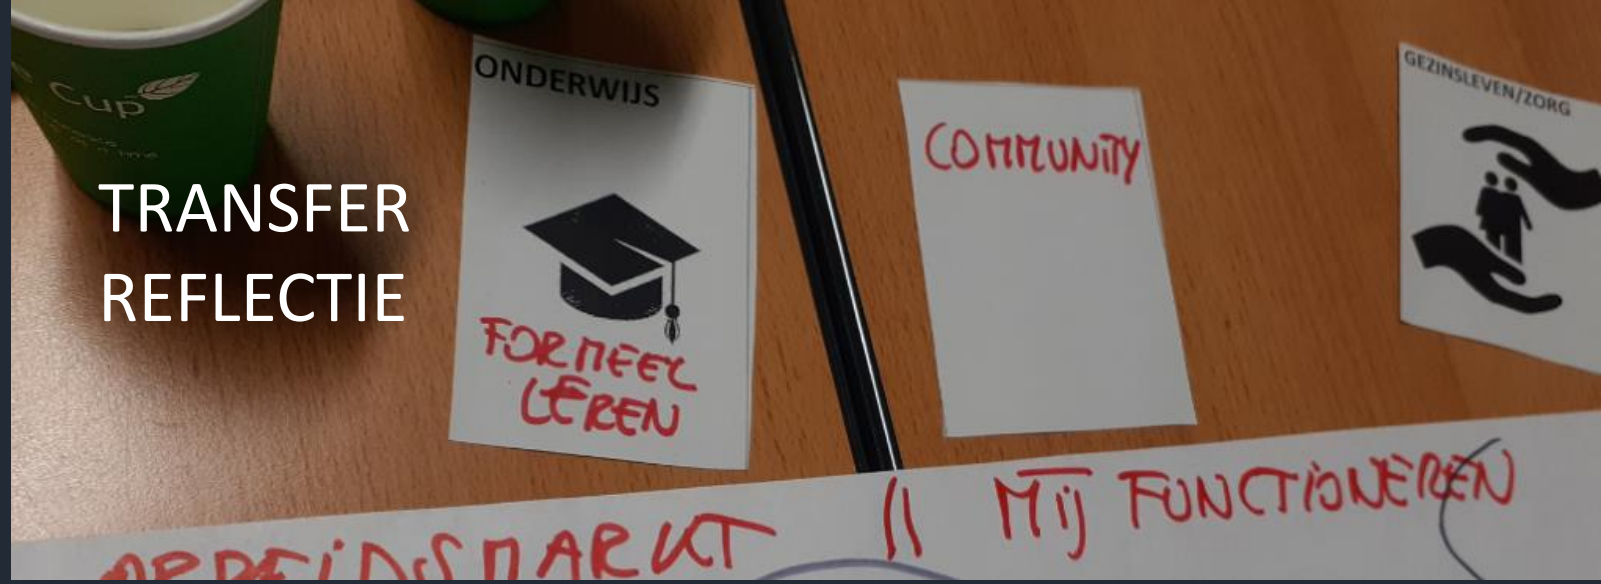 Cup
TRANSFER
REFLECTIE
ONDERWIJS
FORMEEL
LEREN
COMMUNITY
GEZINSLEVEN/ZORG
ARBEIDSMARKT // MIJ FUNCTIONEREN